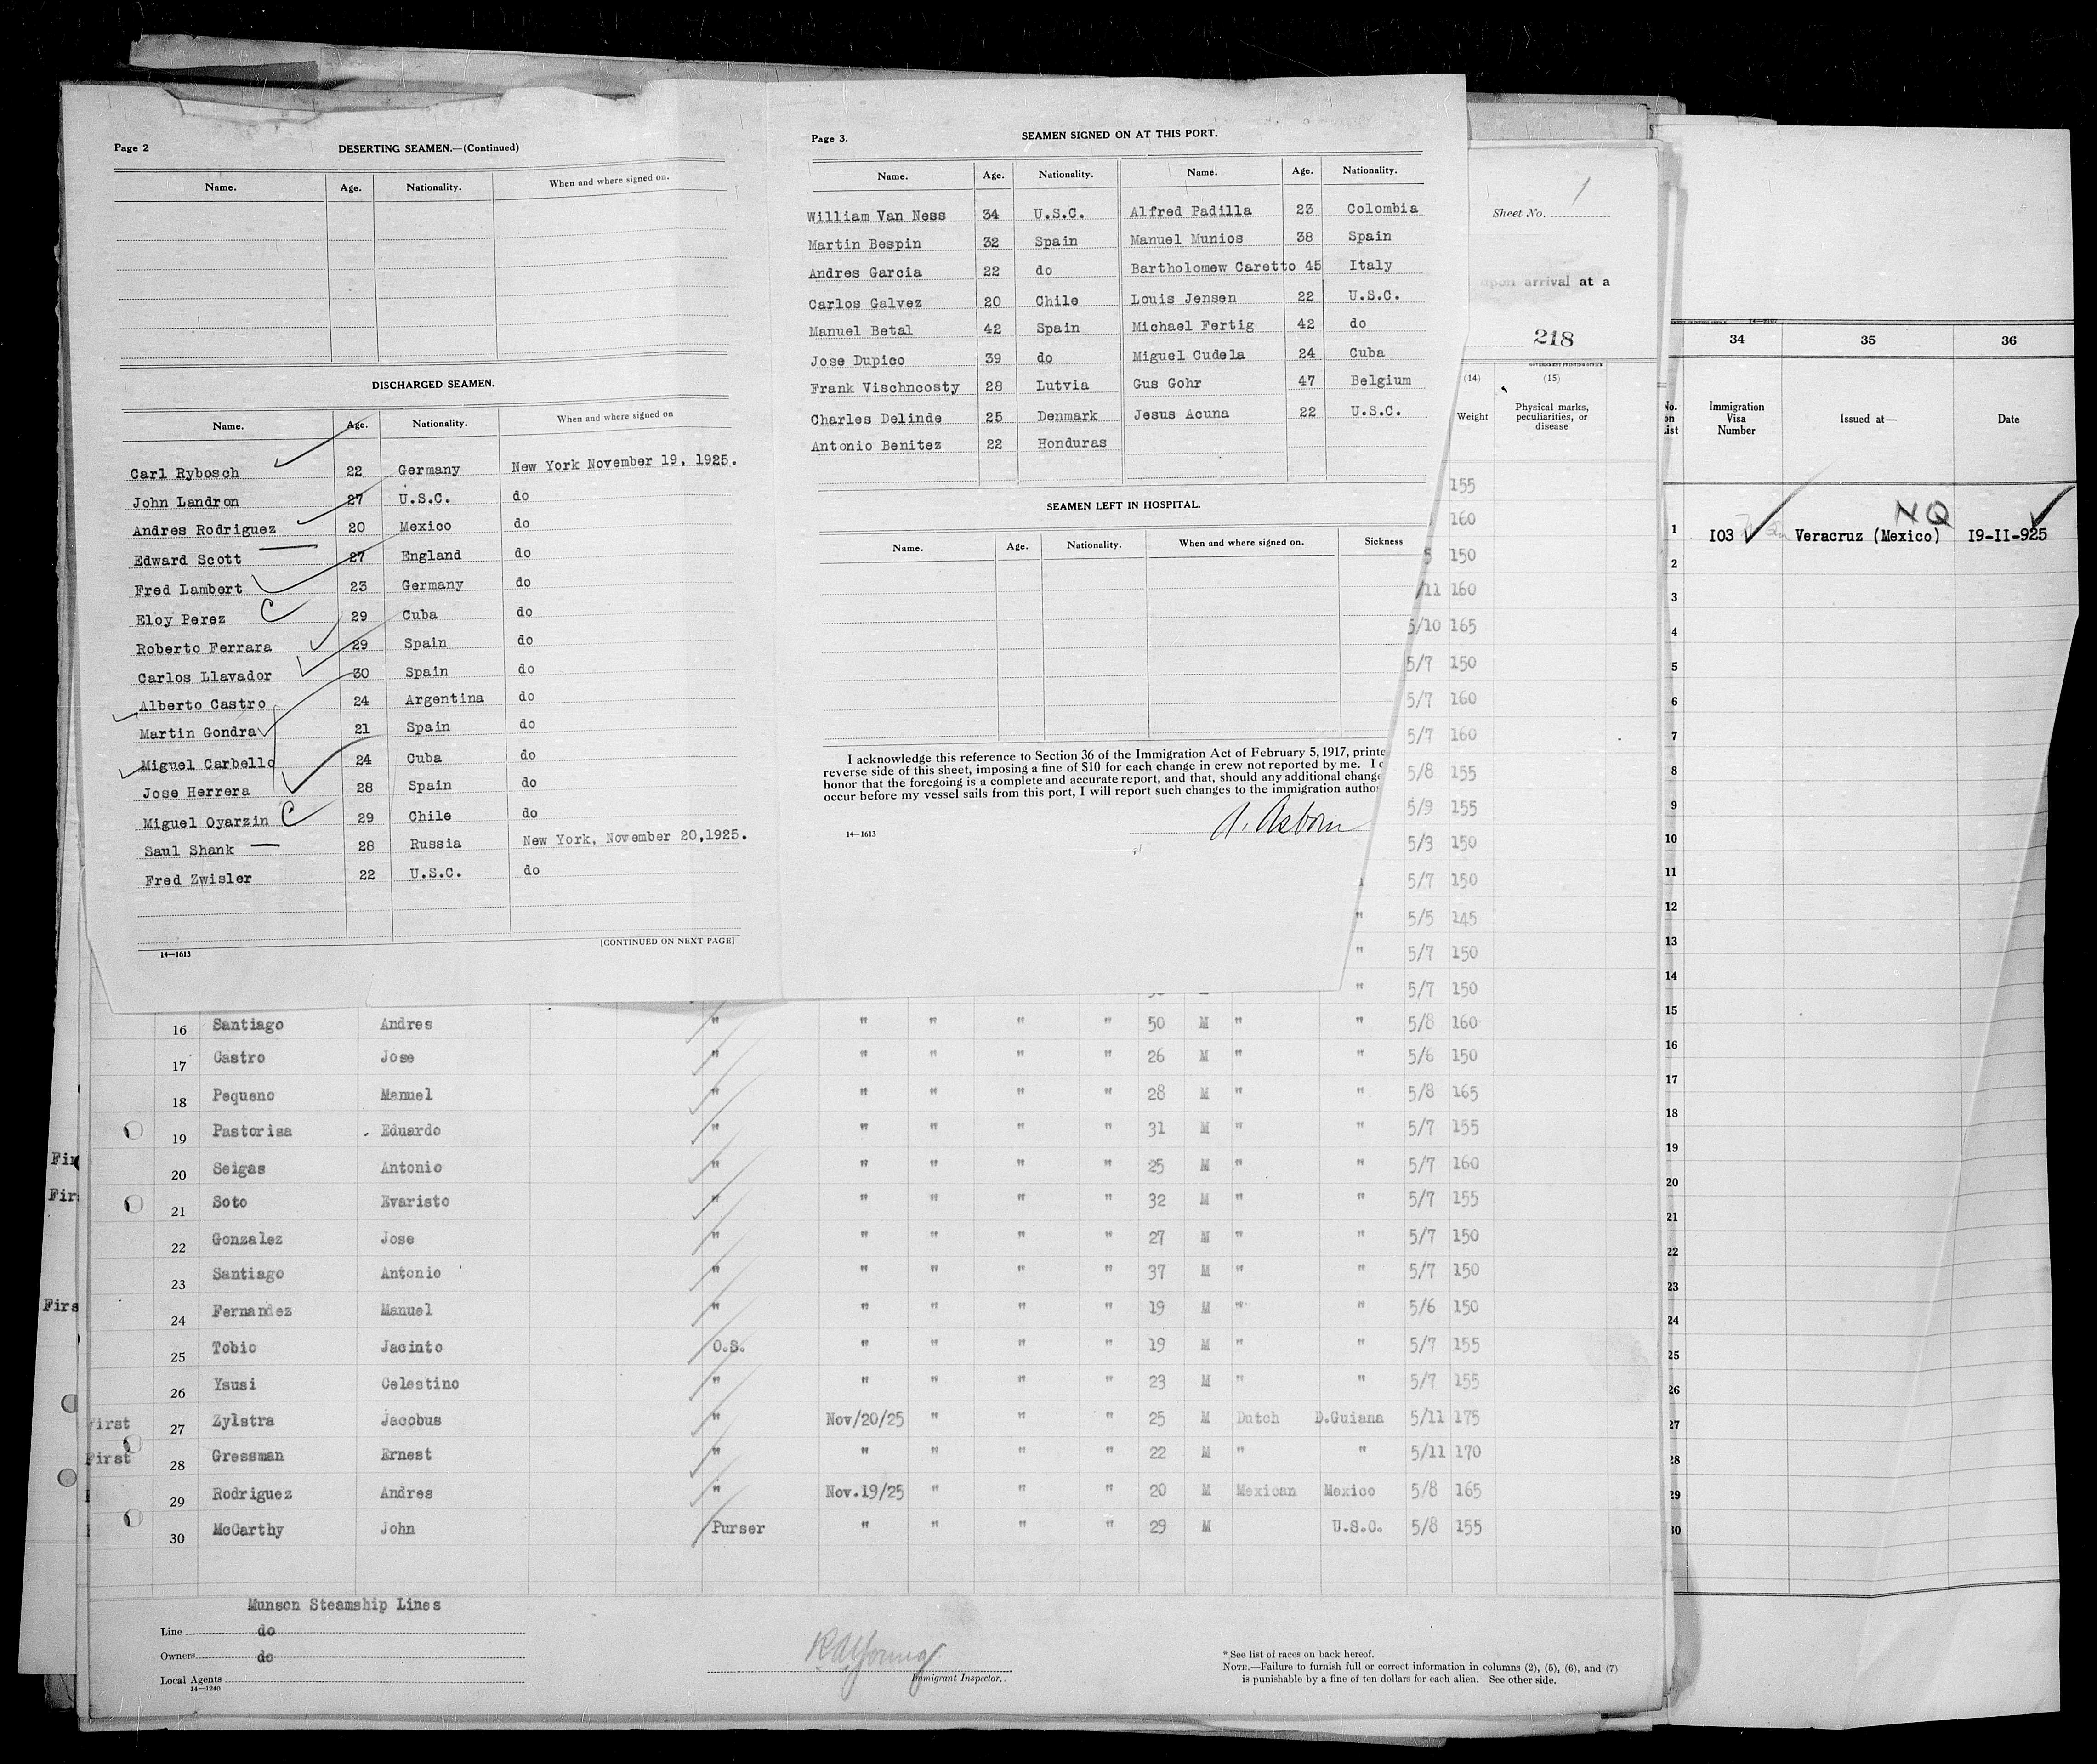 Page 2
DESERTING SEAMEN.—(Continued)
Name. Age. Nationality. When and where signed on.
DISCHARGED SEAMEN.
Name. Age. Nationality. When and where signed on
Carl Rybosch 22 Germany New York November 19, 1925.
John Landron 27 U.S.C. do
Andres Rodriguez 20 Mexico do
Edward Scott 27 England do
Fred Lambert 23 Germany do
Eloy Perez C 29 Cuba do
Roberto Ferrara 29 Spain do
Carlos Llavador 30 Spain do
Alberto Castro 24 Argentina do
Martin Gondra 21 Spain do
Miguel Carbello 24 Cuba do
Jose Herrera 28 Spain do
Miguel Oyarzin C 29 Chile do
Saul Shank 28 Russia New York, November 20,1925.
Fred Zwisler 22 U.S.C. do
[CONTINUED ON NEXT PAGE]
14—1613
Page 3.
SEAMEN SIGNED ON AT THIS PORT.
Name. Age. Nationality. Name. Age. Nationality.
William Van Ness 34 U.S.C. Alfred Padilla 23 Colombia
Martin Bespin 32 Spain Manuel Munios 38 Spain
Andres Garcia 22 do Bartholomew Caretto 45 Italy
Carlos Galvez 20 Chile Louis Jensen 22 U.S.C.
Manuel Betal 42 Spain Michael Fertig 42 do
Jose Dupico 39 do Miguel Cudela 24 Cuba
Frank Vischncosty 28 Lutvia Gus Gohr 47 Belgium
Charles Delinde 25 Denmark Jesus Acuna 22 U.S.C.
Antonio Benitez 22 Honduras
SEAMEN LEFT IN HOSPITAL.
Name. Age. Nationality. When and where signed on. Sickness
I acknowledge this reference to Section 36 of the Immigration Act of February 5, 1917, printe
reverse side of this sheet, imposing a fine of $10 for each change in crew not reported by me. I
honor that the foregoing is a complete and accurate report, and that, should any additional change
occur before my vessel sails from this port, I will report such changes to the immigration autho
A. Osborn
14—1613
Sheet No. 1
upon arrival at a
218
GOVERNMENT PRINTING OFFICE
(14) (15)
Weight Physical marks,
peculiarities, or
disease
155
160
5 150
/11 160
5/10 165
5/7 150
5/7 160
5/7 160
5/8 155
5/9 155
5/3 150
5/7 150
" 5/5 145
" 5/7 150
" 5/7 150
16 Santiago Andres " " " " " 50 M " " 5/8 160
17 Castro Jose " " " " " 26 M " " 5/6 150
18 Pequeno Manuel " " " " " 28 M " " 5/8 165
19 Pastorisa Eduardo " " " " " 31 M " " 5/7 155
20 Seigas Antonio " " " " " 25 M " " 5/7 160
21 Soto Evaristo " " " " " 32 M " " 5/7 155
22 Gonzalez Jose " " " " " 27 M " " 5/7 150
23 Santiago Antonio " " " " " 37 M " " 5/7 150
24 Fernandez Manuel " " " " " 19 M " " 5/6 150
25 Tobio Jacinto O.S. " " " " 19 M " " 5/7 155
26 Ysusi Celestino " " " " " 23 M " " 5/7 155
First 27 Zylstra Jacobus " Nov/20/25 " " " 25 M Dutch D.Guiana 5/11 175
First 28 Gressman Ernest " " " " " 22 M " " 5/11 170
29 Rodriguez Andres " Nov.19/25 " " " 20 M Mexican Mexico 5/8 165
30 McCarthy John Purser " " " " 29 M U.S.C. 5/8 155
Munson Steamship Lines
Line do
Owners do
Local Agents
14—1240
R A Young
Immigrant Inspector.
* See list of races on back hereof.
NOTE.—Failure to furnish full or correct information in columns (2), (5), (6), and (7)
is punishable by a fine of ten dollars for each alien. See other side.
Fir
Fir
Firs
34 35 36
No.
on
List
Immigration
Visa
Number
Issued at— Date
NQ
1 103 Veracruz (Mexico) 19-II-925
2
3
4
5
6
7
8
9
10
11
12
13
14
15
16
17
18
19
20
21
22
23
24
25
26
27
28
29
30